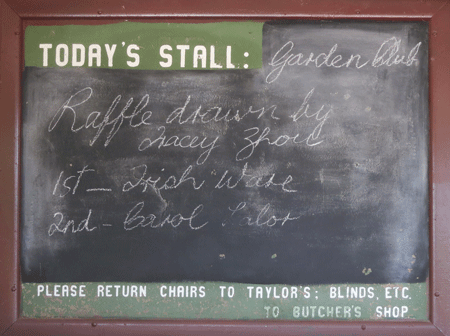 TODAY'S STALL: Garden Club
Raffle drawn by
Tracey Zhou
1st - Trish Ware
2nd - Carol Lalor
PLEASE RETURN CHAIRS TO TAYLOR'S; BLINDS, ETC.
TO BUTCHER'S SHOP.